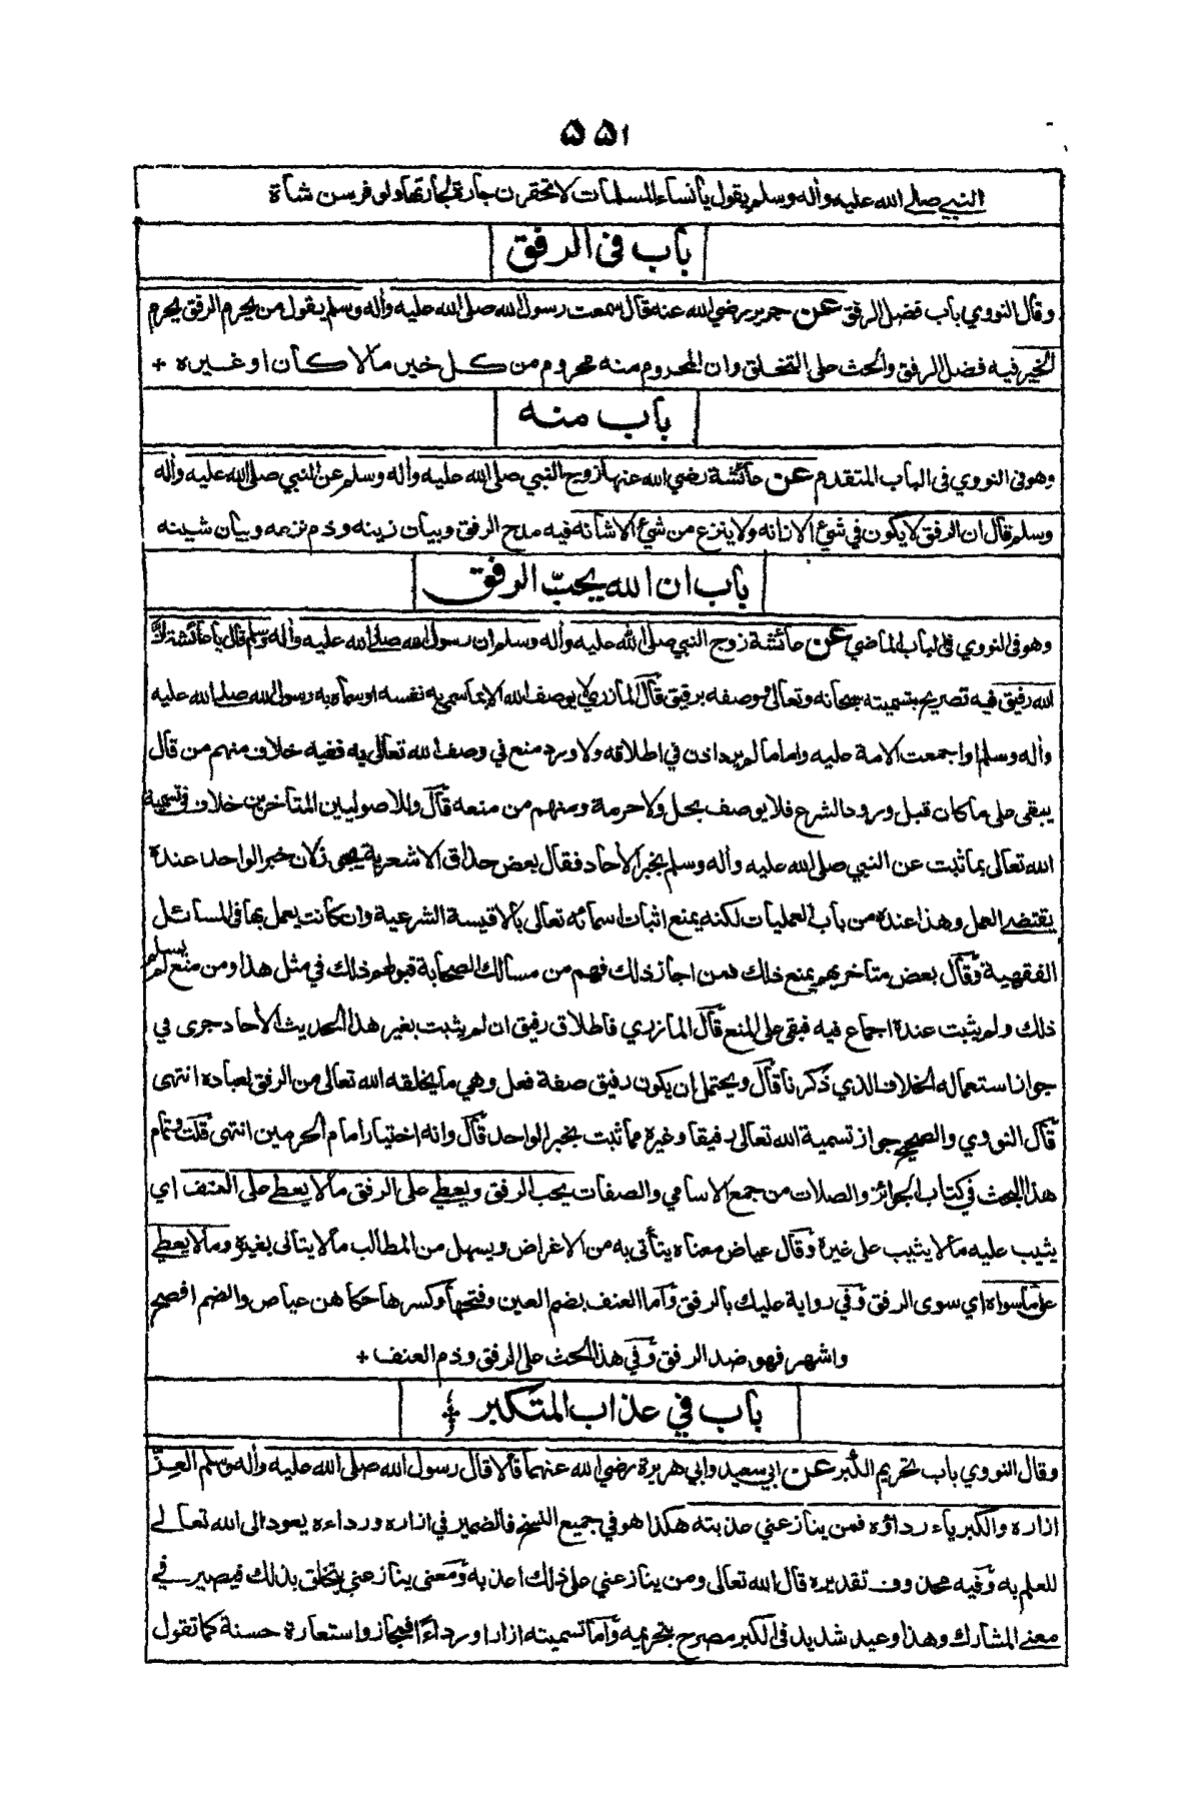 ٥٥١
النبي صلى الله عليه وأله وسلم يقول يا نساء المسلمات لا تحقرن جارة لجارتها ولو فرسن شاة
باب في الرفق
وقال النووي باب فضل الرفق عن جرير رضي الله عنه قال سمعت رسول الله صلى الله عليه وأله وسلم يقول من يحرم الرفق يحرم
الخير فيه فضل الرفق والحث على التخلق وان المحروم منه محروم من كل خير مالا كان او غيره +
باب منه
وهو في النووي في الباب المتقدم عن عائشة رضي الله عنها زوج النبي صلى الله عليه وأله وسلم عن النبي صلى الله عليه وأله
وسلم قال ان الرفق لا يكون في شيء الا زانه ولا ينزع من شيء الا شانه فيه مدح الرفق وبيان زينه وذم نزعه وبيان شينه
باب ان الله يحبّ الرفق
وهو في النووي في الباب الماضي عن عائشة زوج النبي صلى الله عليه وأله وسلم ان رسول الله صلى الله عليه وأله وسلم قال يا عائشة انّ
الله رفيق فيه تصريح بتسميته سبحانه وتعالى ووصفه برفيق قال المازري لا يوصف الله الا بما سمى به نفسه او سماه به رسول الله صلى الله عليه
وأله وسلم او اجمعت الامة عليه واما ما لم يرد اذن في اطلاقه ولا ورد منع في وصف الله تعالى به ففيه خلاف منهم من قال
يبقى على ما كان قبل ورود الشرع فلا يوصف بحل ولا حرمة ومنهم من منعه قال وللاصوليين المتأخرين خلاف في تسمية
الله تعالى بما ثبت عن النبي صلى الله عليه وأله وسلم بخبر الأحاد فقال بعض حذاق الاشعرية يجوز لان خبر الواحد عنده
يقتضي العمل وهذا عنده من باب العمليات لكنه يمنع اثبات اسمائه تعالى بالاقيسة الشرعية وان كانت يعمل بها في المسائل
الفقهية وقال بعض متأخريهم يمنع ذلك فمن اجاز ذلك فهم من مسالك الصحابة قبولهم ذلك في مثل هذا ومن منع لم يسلم
ذلك ولم يثبت عنده اجماع فيه فبقي على المنع قال المازري فاطلاق رفيق ان لم يثبت بغير هذا الحديث الأحاد جرى في
جواز استعماله الخلاف الذي ذكرنا قال ويحتمل ان يكون رفيق صفة فعل وهي ما يخلقه الله تعالى من الرفق لعباده انتهى
قال النووي والصحيح جواز تسمية الله تعالى رفيقا وغيره مما ثبت بخبر الواحد قال وانه اختيار امام الحرمين انتهى قلت وتمام
هذا البحث في كتاب الجوائز والصلات من جمع الاسامي والصفات يحب الرفق ويعطي على الرفق مالا يعطي على العنف اي
يثيب عليه مالا يثيب على غيره وقال عياض معناه يتأتى به من الاغراض ويسهل من المطالب مالا يتأتى بغيره ومالا يعطي
على ما سواه اي سوى الرفق وفي رواية عليك بالرفق واما العنف بضم العين وفتحها وكسرها حكاهن عياض والضم افصح
واشهر فهو ضد الرفق وفي هذا الحث على الرفق وذم العنف +
باب في عذاب المتكبر
وقال النووي باب تحريم الكبر عن ابي سعيد وابي هريرة رضي الله عنهما قالا قال رسول الله صلى الله عليه وأله وسلم العزّ
ازاره والكبرياء رداؤه فمن ينازعني عذبته هكذا هو في جميع النسخ فالضمير في ازاره ورداءه يعود الى الله تعالى
للعلم به وفيه محذوف تقديره قال الله تعالى ومن ينازعني على ذلك اعذبه ومعنى ينازعني يتخلق بذلك فيصير في
معنى المشارك وهذا وعيد شديد في الكبر مصرح بتحريمه واما تسميته ازارا ورداءً فمجاز واستعارة حسنة كما تقول